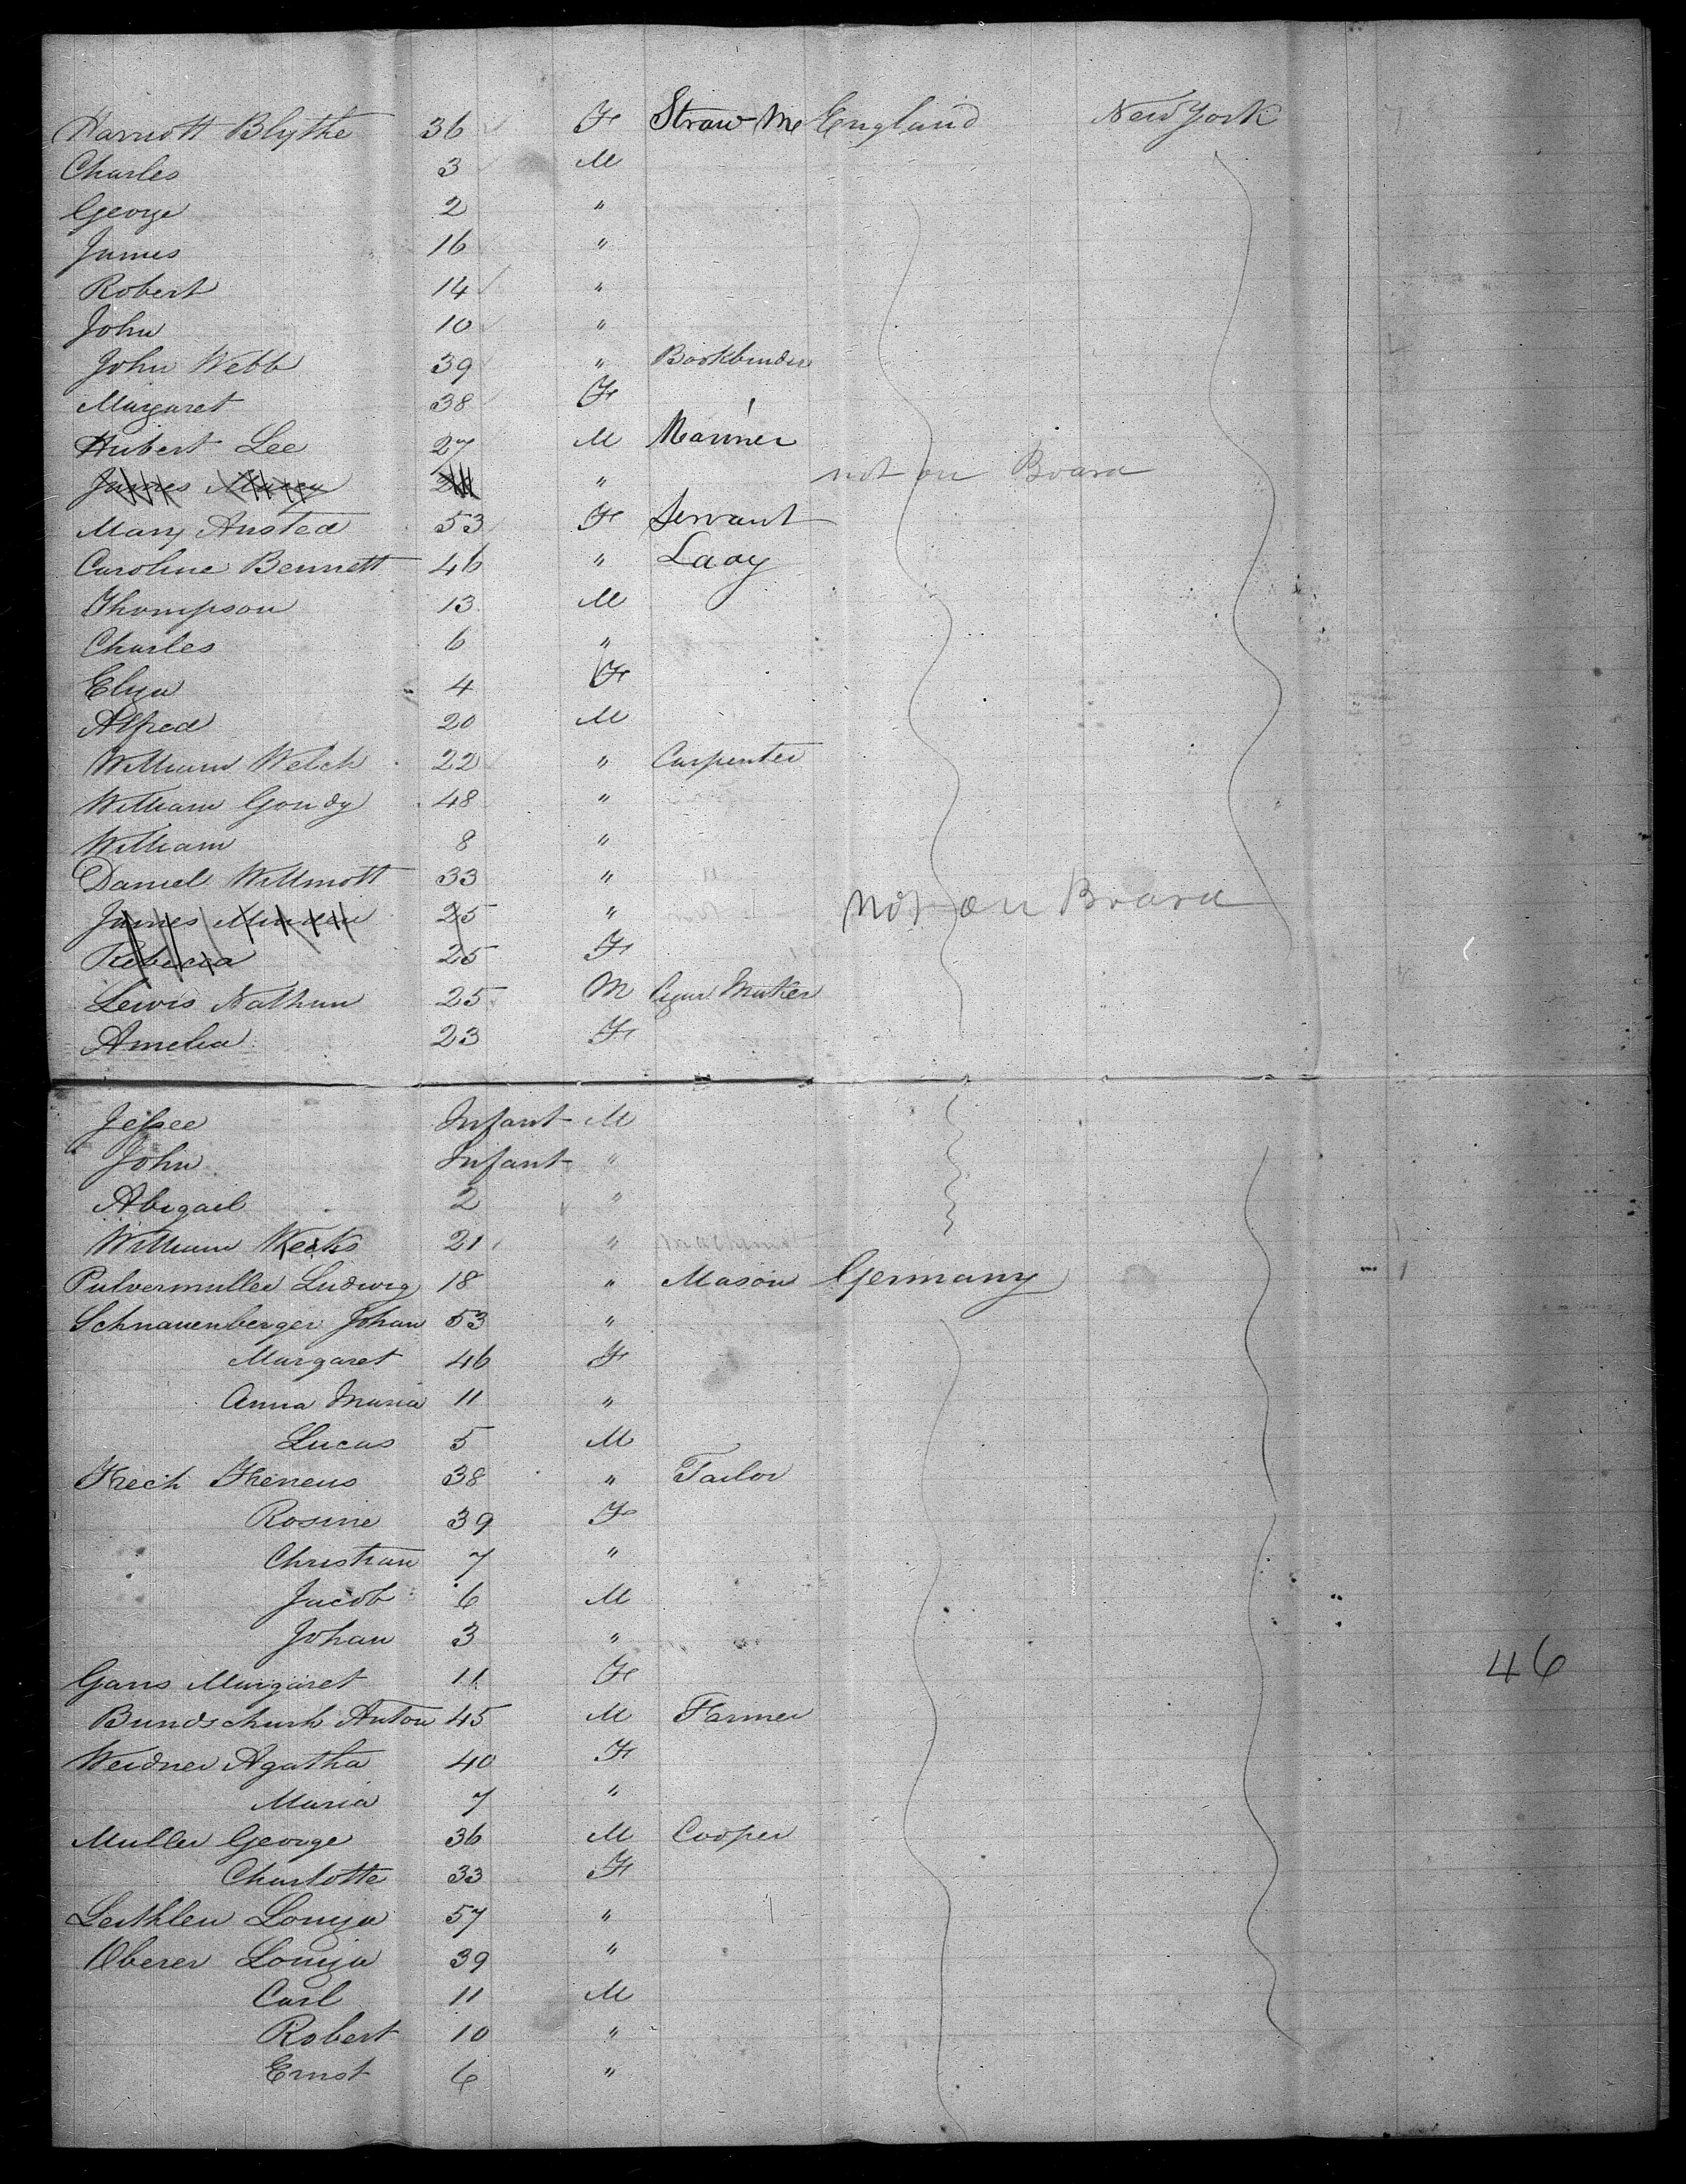 Harriott Blythe 36 F Straw Me England New York
Charles 3 M
George 2 "
James 16 "
Robert 14 "
John 10 "
John Webb 39 " Bookbinder
Margaret 38 F
Hubert Lee 27 M Mariner
James " not on Board
Mary Ansted 53 F Servant
Caroline Bennett 46 " Lady
Thompson 13 M
Charles 6 "
Eliza 4 F
Alfred 20 M
William Welch 22 " Carpenter
William Goudy 48 "
William 8 "
Daniel Willmott 33 "
James 25 " not on Board
Rebecca 25 F
Lewis Nathan 25 M Cigar Maker
Amelia 23 F
Jessee Infant M
John Infant "
Abigail 2 "
William Weeks 21 "
Pulvermuller Ludwig 18 " Mason Germany
Schnauenberger Johan 53 "
Margaret 46 F
Anna Maria 11 "
Lucas 5 M
Frech 38 " Tailor
Rosine 39 F
Christian 7 "
Jacob 6 M
Johan 3 "
Gans Margaret 11 F
46
Bundschuh Anton 45 M Farmer
Weidner Agatha 40 F
Maria 7 "
Muller George 36 M Cooper
Charlotte 33 F
Leithlen Louiza 57 "
Oberer Louiza 39 "
Carl 11 M
Robert 10 "
Ernst 6 "